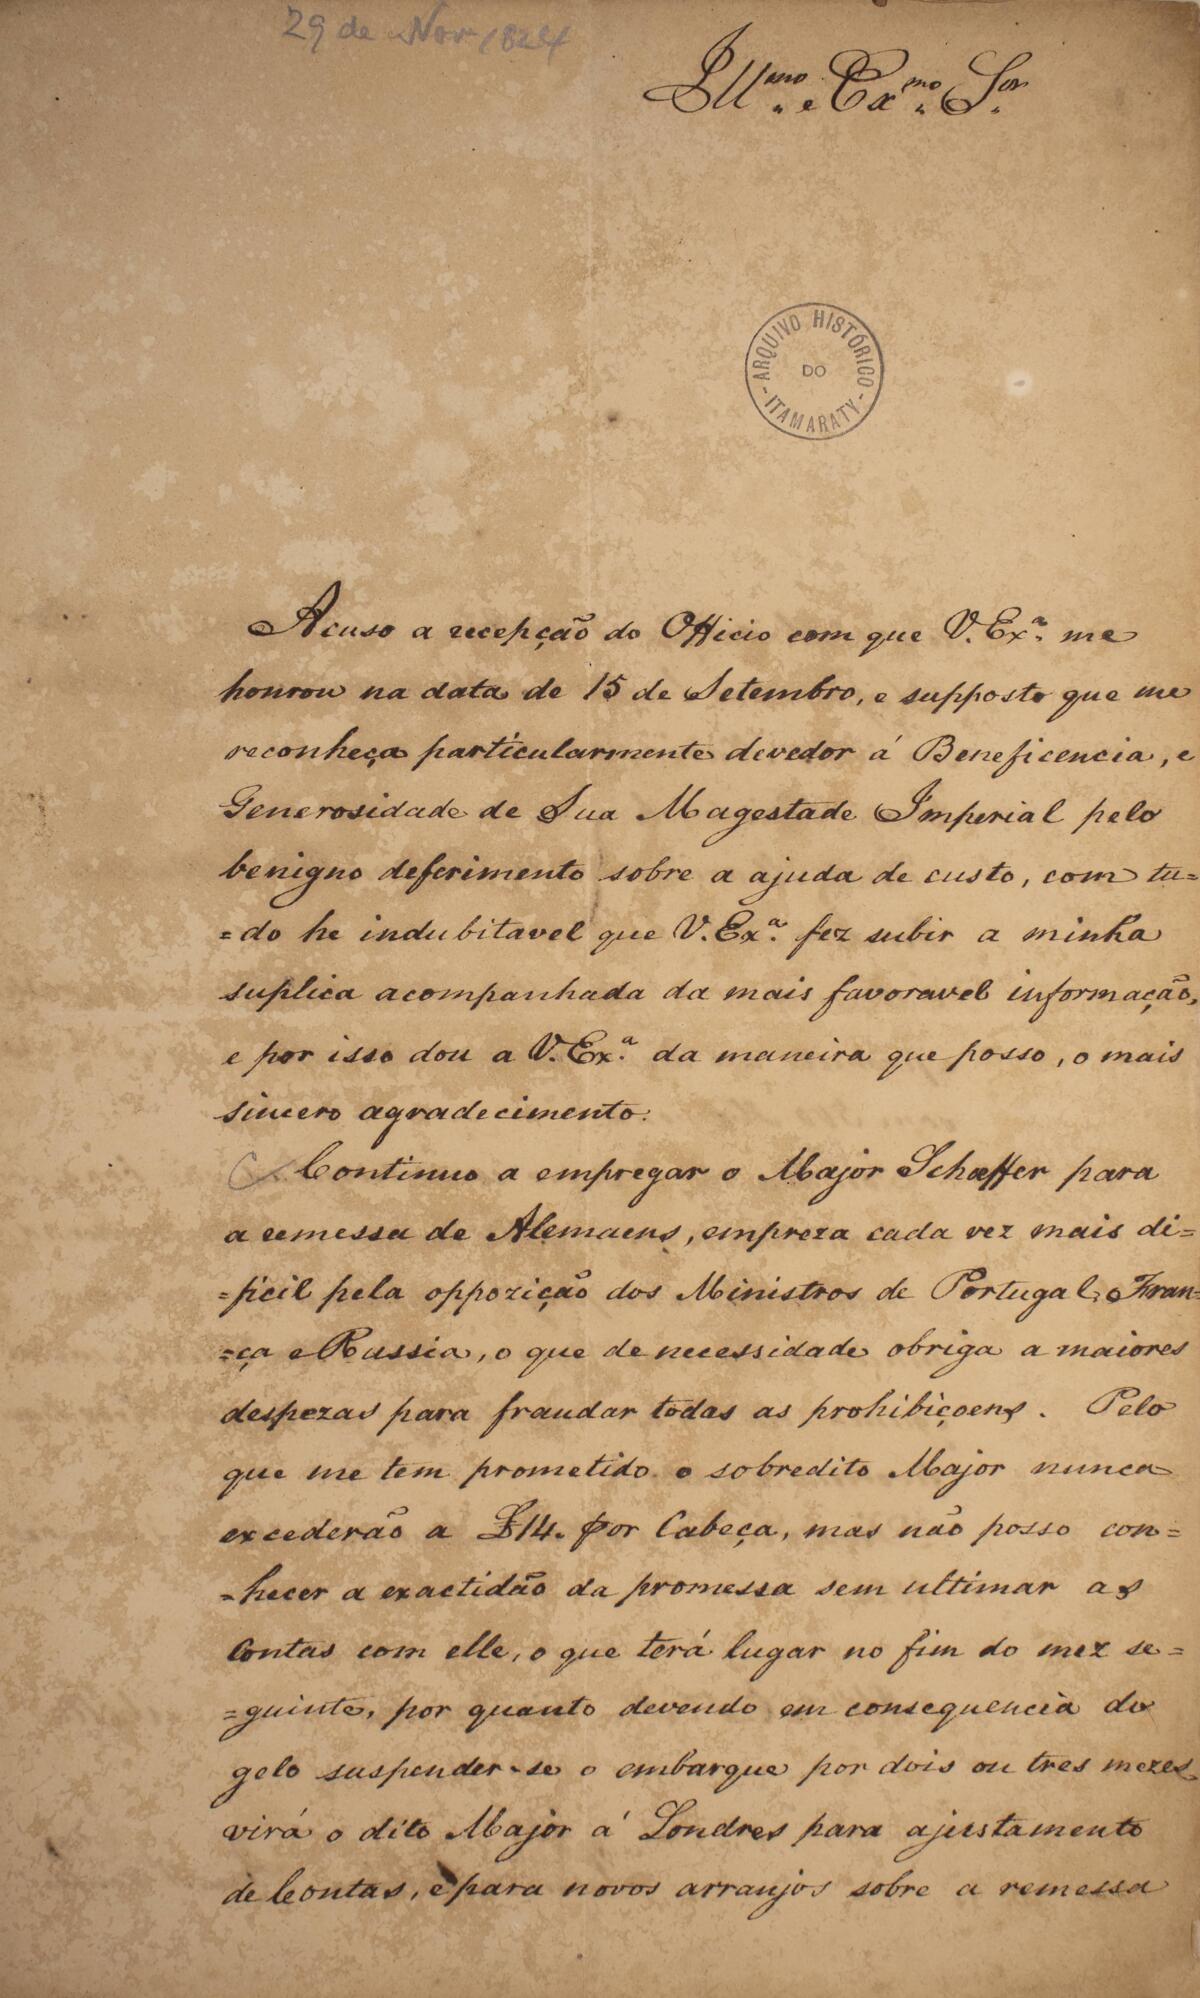 29 de Nov 1824
Illmo. e Exmo. Sor.
ARQUIVO HISTÓRICO
DO
- ITAMARATY -
Acuso a recepção do Officio com que V. Exa. me
honrou na data de 15 de Setembro, e supposto que me
reconheça particularmente devedor á Beneficencia, e
Generosidade de Sua Magestade Imperial pelo
benigno deferimento sobre a ajuda de custo, com tu=
=do he indubitavel que V. Exa. fez subir a minha
suplica acompanhada da mais favoravel informação,
e por isso dou a V. Exa. da maneira que posso, o mais
sincero agradecimento.
Continuo a empregar o Major Schæffer para
a remessa de Alemaens, empreza cada vez mais di=
=ficil pela oppozição dos Ministros de Portugal, Fran=
=ça e Russia, o que de necessidade obriga a maiores
despezas para fraudar todas as prohibiçoens. Pelo
que me tem prometido o sobredito Major nunca
excederão a £14. por Cabeça, mas não posso con=
=hecer a exactidão da promessa sem ultimar as
Contas com elle, o que terá lugar no fim do mez se=
=guinte, por quanto devendo em consequencia do
gelo suspender-se o embarque por dois ou tres mezes
virá o dito Major á Londres para ajustamento
de Contas, e para novos arranjos sobre a remessa